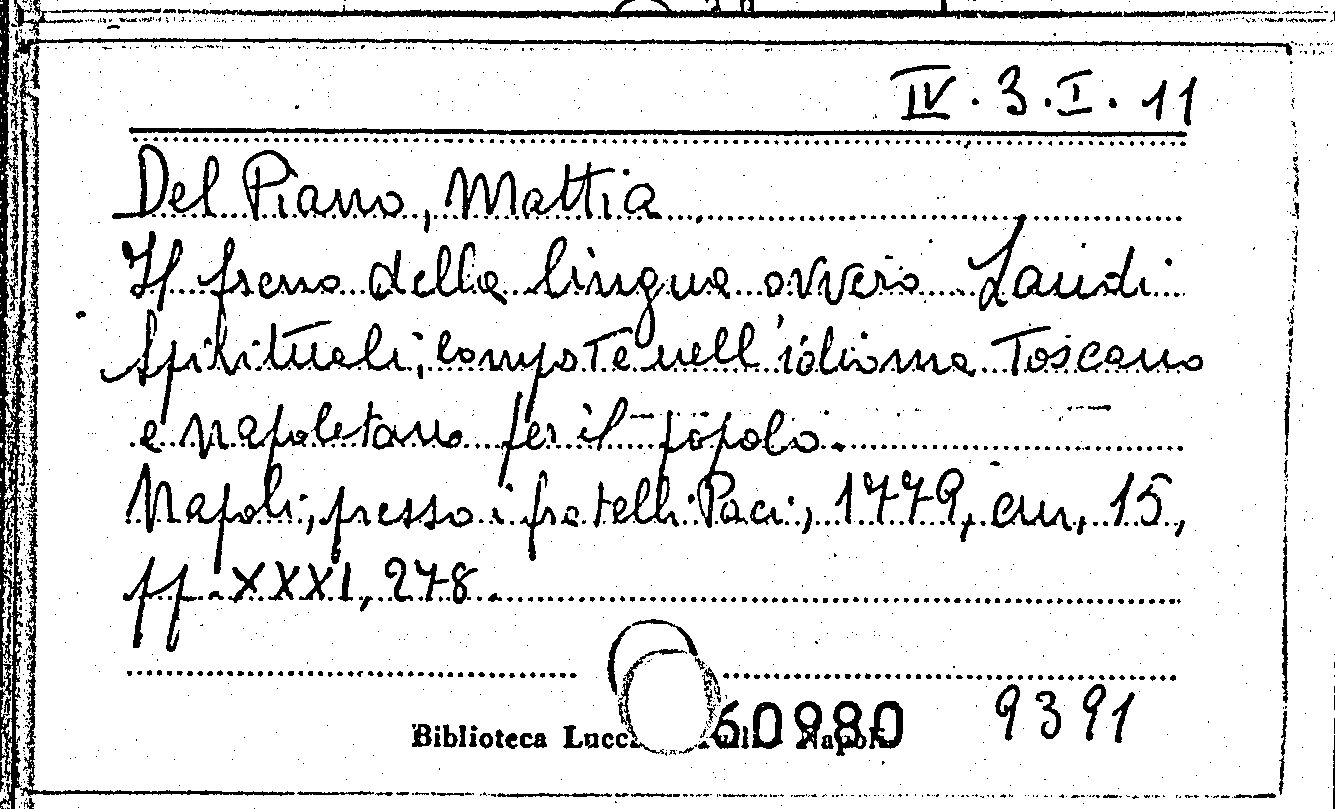 IV. 3. I. 11
Del Piano, Mattia
Il freno della lingua ovvero Laudi
spirituali, composte nell'idioma Toscano
e napoletano per il popolo.
Napoli, presso i fratelli Paci, 1779, cm, 15,
pp. XXXI, 278.
60980 9391
Biblioteca Napoli